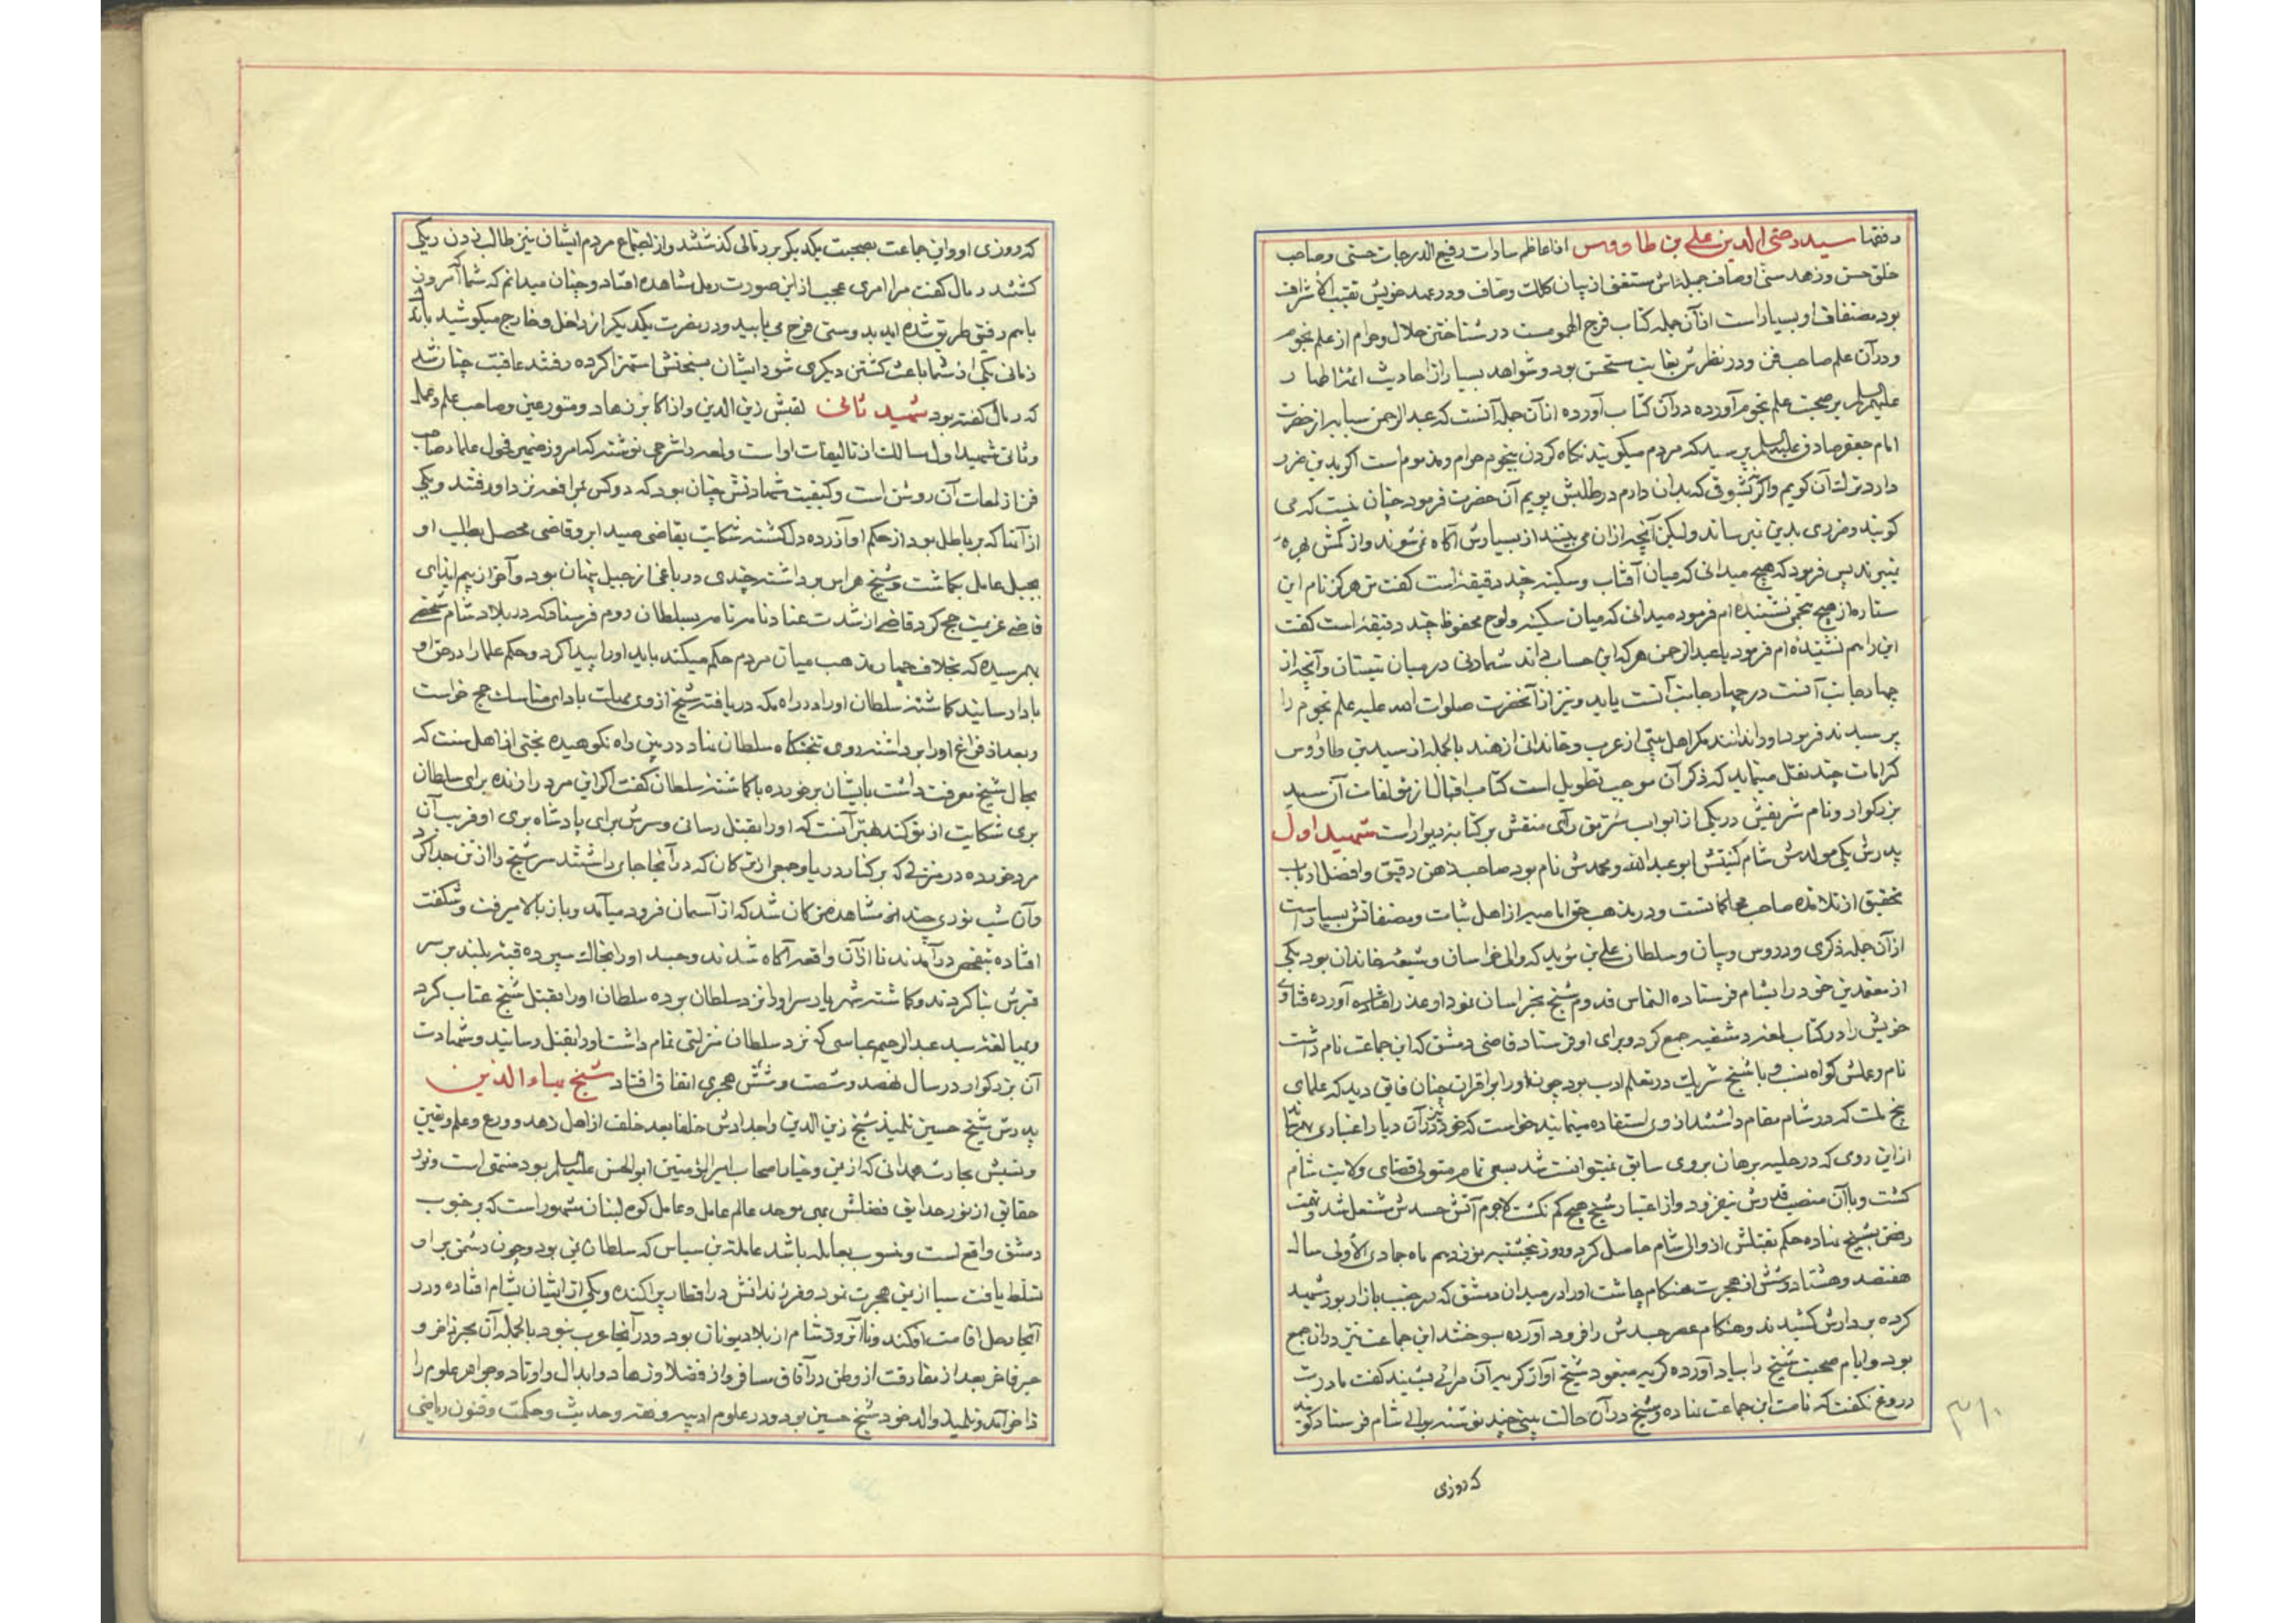 و فقها سید رضی الدین علی بن طاووس از اعاظم سادات رفیع الدرجات حسنی و صاحب
خلق حسن و زهد سنی اوصاف جمیله اش مستغنی از بیان کلک وصاف و در عهد خویش نقیب الاشراف
بود مصنفات او بسیار است از آن جمله کتاب فرج الهموم است در شناختن حلال و حرام از علم نجوم
و در آن علم صاحب فن و در نظرش بغایت مستحسن بود و شواهد بسیار از احادیث ائمه اطهار
علیهم السلم بر صحت علم نجوم آورده در آن کتاب آورده از آن جمله آنست که عبد الرحمن سیابه از حضرت
امام جعفر صادق علیه السلم پرسید که مردم میگویند نگاه کردن بنجوم حرام و مذموم است اگر بدین ضرر
دارد ترک آن گویم و اگر نه بشوقی که بدان دارم در طلبش پویم آن حضرت فرمود چنان نیست که می
گویند و ضرری بدین نمیرساند ولیکن آنچه از آن می بینند از بسیارش آگاه نمی شوند و از کمش بهره
نمیبرند پس فرمود که هیچ میدانی که میان آفتاب و سکینه چند دقیقه است گفت من هرگز نام این
ستاره از هیچ منجمی نشنیده ام فرمود میدانی که میان سکینه و لوح محفوظ چند دقیقه است گفت
این را هم نشنیده ام فرمود یا عبد الرحمن هر که این حساب داند شماره نی در میان نیستان و آنچه از
چهار جانب آنست در چهار جانب آنست یابد و نیز از آنحضرت صلوات الله علیه علم نجوم را
پرسیدند فرمود او را ندانند مگر اهل بیتی از عرب و خاندانی از هند بالجمله از سید بن طاووس
کرامات چند نقل مینماید که ذکر آن موجب تطویل است کتاب اقبال از مؤلفات آن سید
بزرگوار و نام شریفش در یکی از ابواب سر من رآی منقش بر کتابه دیوار است شهید اول
پدرش مکی مولدش شام کنیتش ابو عبد الله و محمدش نام بود صاحب ذهن دقیق و افضل ارباب
تحقیق از تلامذه صاحب محاکماتست و در مذهب حق امامیه از اهل ثبات و مصنفاتش بسیار است
از آن جمله ذکری و دروس و بیان و سلطان علی بن مؤید که والی خراسان و شیعه خاندان بود یکی
از معتمدین خود را بشام فرستاده التماس قدوم شیخ بخراسان نمود او عذر رافتاده آورده فتاوی
خویش را در کتاب لمعه دمشقیه جمع کرد و برای او فرستاد قاضی دمشق که ابن جماعت نام داشت
نام و علمش گواه نسب و با شیخ شریک در تعلم ادب بود چون او را بر اقران چنان فایق دید که علمای
پنج ملت که در شام مقام داشتند از وی استفاده مینمایند خواست که خود نیز در آن دیار اعتباری بهم رساند
از این روی که در حلبه برهان بر وی سابق نمیتوانست شد بسعی تمام متولی قضای ولایت شام
گشت و با آن منصب قدرش نیفزود و از اعتبار شیخ هیچ کم نگشت لاجرم آتش حسدش مشتعل شد و تهمت
رفض بشیخ نهاده حکم بقتلش از والی شام حاصل کرد و روز پنجشنبه نوزدهم ماه جمادی الاولی سال
هفتصد و هشتاد و شش از هجرت هنگام چاشت او را در میدان دمشق که در جنب بازار بود شهید
کرده بر دارش کشیدند و هنگام عصر جسدش را فرود آورده بسوختند ابن جماعت نیز در آن جمع
بود و ایام صحبت شیخ را بیاد آورده گریه مینمود شیخ آواز گریه آن مرائی بشنید گفت مادرت
دروغ نگفت که نامت ابن جماعت نهاده و شیخ در آن حالت بیتی چند نوشته بوالی شام فرستاد گویند
که روزی
۳۱۰
که روزی او و ابن جماعت بصحبت یکدیگر بر رمالی گذشتند و از اجتماع مردم ایشان نیز طالب زدن رملی
گشتند رمال گفت مرا امری عجب از این صورت رمل مشاهده افتاد و چنان میدانم که شما که امروز
با هم رفیق طریق شده اید بدوستی فرح می یابید و در مضرت یکدیگر از داخل و خارج میکوشید باندک
زمانی یکی از شما باعث کشتن دیگری شود ایشان بسخنش استهزا کرده رفتند عاقبت چنان شد
که رمال گفته بود شهید ثانی لقبش زین الدین و از اکابر زهاد و متورعین و صاحب علم و عمل
و ثانی شهید اول مسالک از تالیفات او است و لمعه را شرحی نوشته که امروز ضمیر فحول علماء صاحب
فن از لمعات آن روشن است و کیفیت شهادتش چنان بود که دو کس بمرافعه نزد او رفتند و یکی
از آنها که بر باطل بود از حکم او آزرده دل گشته شکایت بقاضی صیدا برد و قاضی محصل بطلب او
بجبل عامل بگماشت و شیخ هراس برداشته چندی در باغها از جبل پنهان بود و آخر از بیم ایذای
قاضی عزیمت حج کرد قاضی از شدت عناد نامه نامه بسلطان روم فرستاد که در بلاد شام شخصی
بهم رسیده که بخلاف چهار مذهب میان مردم حکم میکند باید او را پیدا کرد و حکم علما را در حق او
بادا رسانید گماشته سلطان او را در راه مکه دریافته شیخ از وی مهلت بادای مناسک حج خواست
و بعد از فراغ او را برداشته روی بتختگاه سلطان نهاد در بین راه نکوهیده بختی از اهل سنت که
بحال شیخ معرفت داشت بایشان برخورده با گماشته سلطان گفت اگر این مرد را زنده برای سلطان
بری شکایت از تو کند بهتر آنست که او را بقتل رسانی و سرش برای پادشاه بری او فریب آن
مرد خورده در منزلی که بر کنار دریا و جمعی از ترکان که در آنجا جای داشتند سر شیخ را از تن جدا کرد
و آن شب نوری چند از مشاهده ترکان شد که از آسمان فرود میآمد و باز بالا میرفت و شگفت
افتاده بتفحص درآمدند تا از آن واقعه آگاه شدند و جسد او را بخاک سپرده قبه بلند بر سر
قبرش بنا کردند و گماشته شهریار سر او را نزد سلطان برده سلطان او را بقتل شیخ عتاب کرد
و بمبالغه سید عبد الرحیم عباسی که نزد سلطان منزلتی تمام داشت او را بقتل رسانید و شهادت
آن بزرگوار در سال نهصد و شصت و شش هجری اتفاق افتاد شیخ بهاء الدین
پدرش شیخ حسین تلمیذ شیخ زین الدین و اجدادش خلفا بعد خلف از اهل زهد و ورع و علم و یقین
و نسبش بحارث همدانی که از یمن و خیار اصحاب امیر المؤمنین ابو الحسن علیه السلم بود منتهی است و نور
حقایق از نور حدایق فضلش بمی موحد عالم عامل و عامل کوه لبنان مشهور است که بر جنوب
دمشق واقع است و منسوب بعامله باشد عامله بن سباس که سلطان یمن بود و چون دشمن بر او
تسلط یافت سبا از یمن هجرت نمود و فرزندانش در اقطار پراکنده و یکی از ایشان بشام افتاده و در
آنجا رحل اقامت افکند و تا آنروز شام از بلاد یونان بود و در آنجا عرب نبود بالجمله آن بحر زاخر و
حبر فاخر بعد از مفارقت از وطن در آفاق مسافر و از فضلا و زهاد و ابدال و اوتاد و جواهر علوم را
ذاخر آمد و تلمیذ والد خود شیخ حسین بود و در علوم ادبیه و فقه و حدیث و حکمت و فنون ریاضی